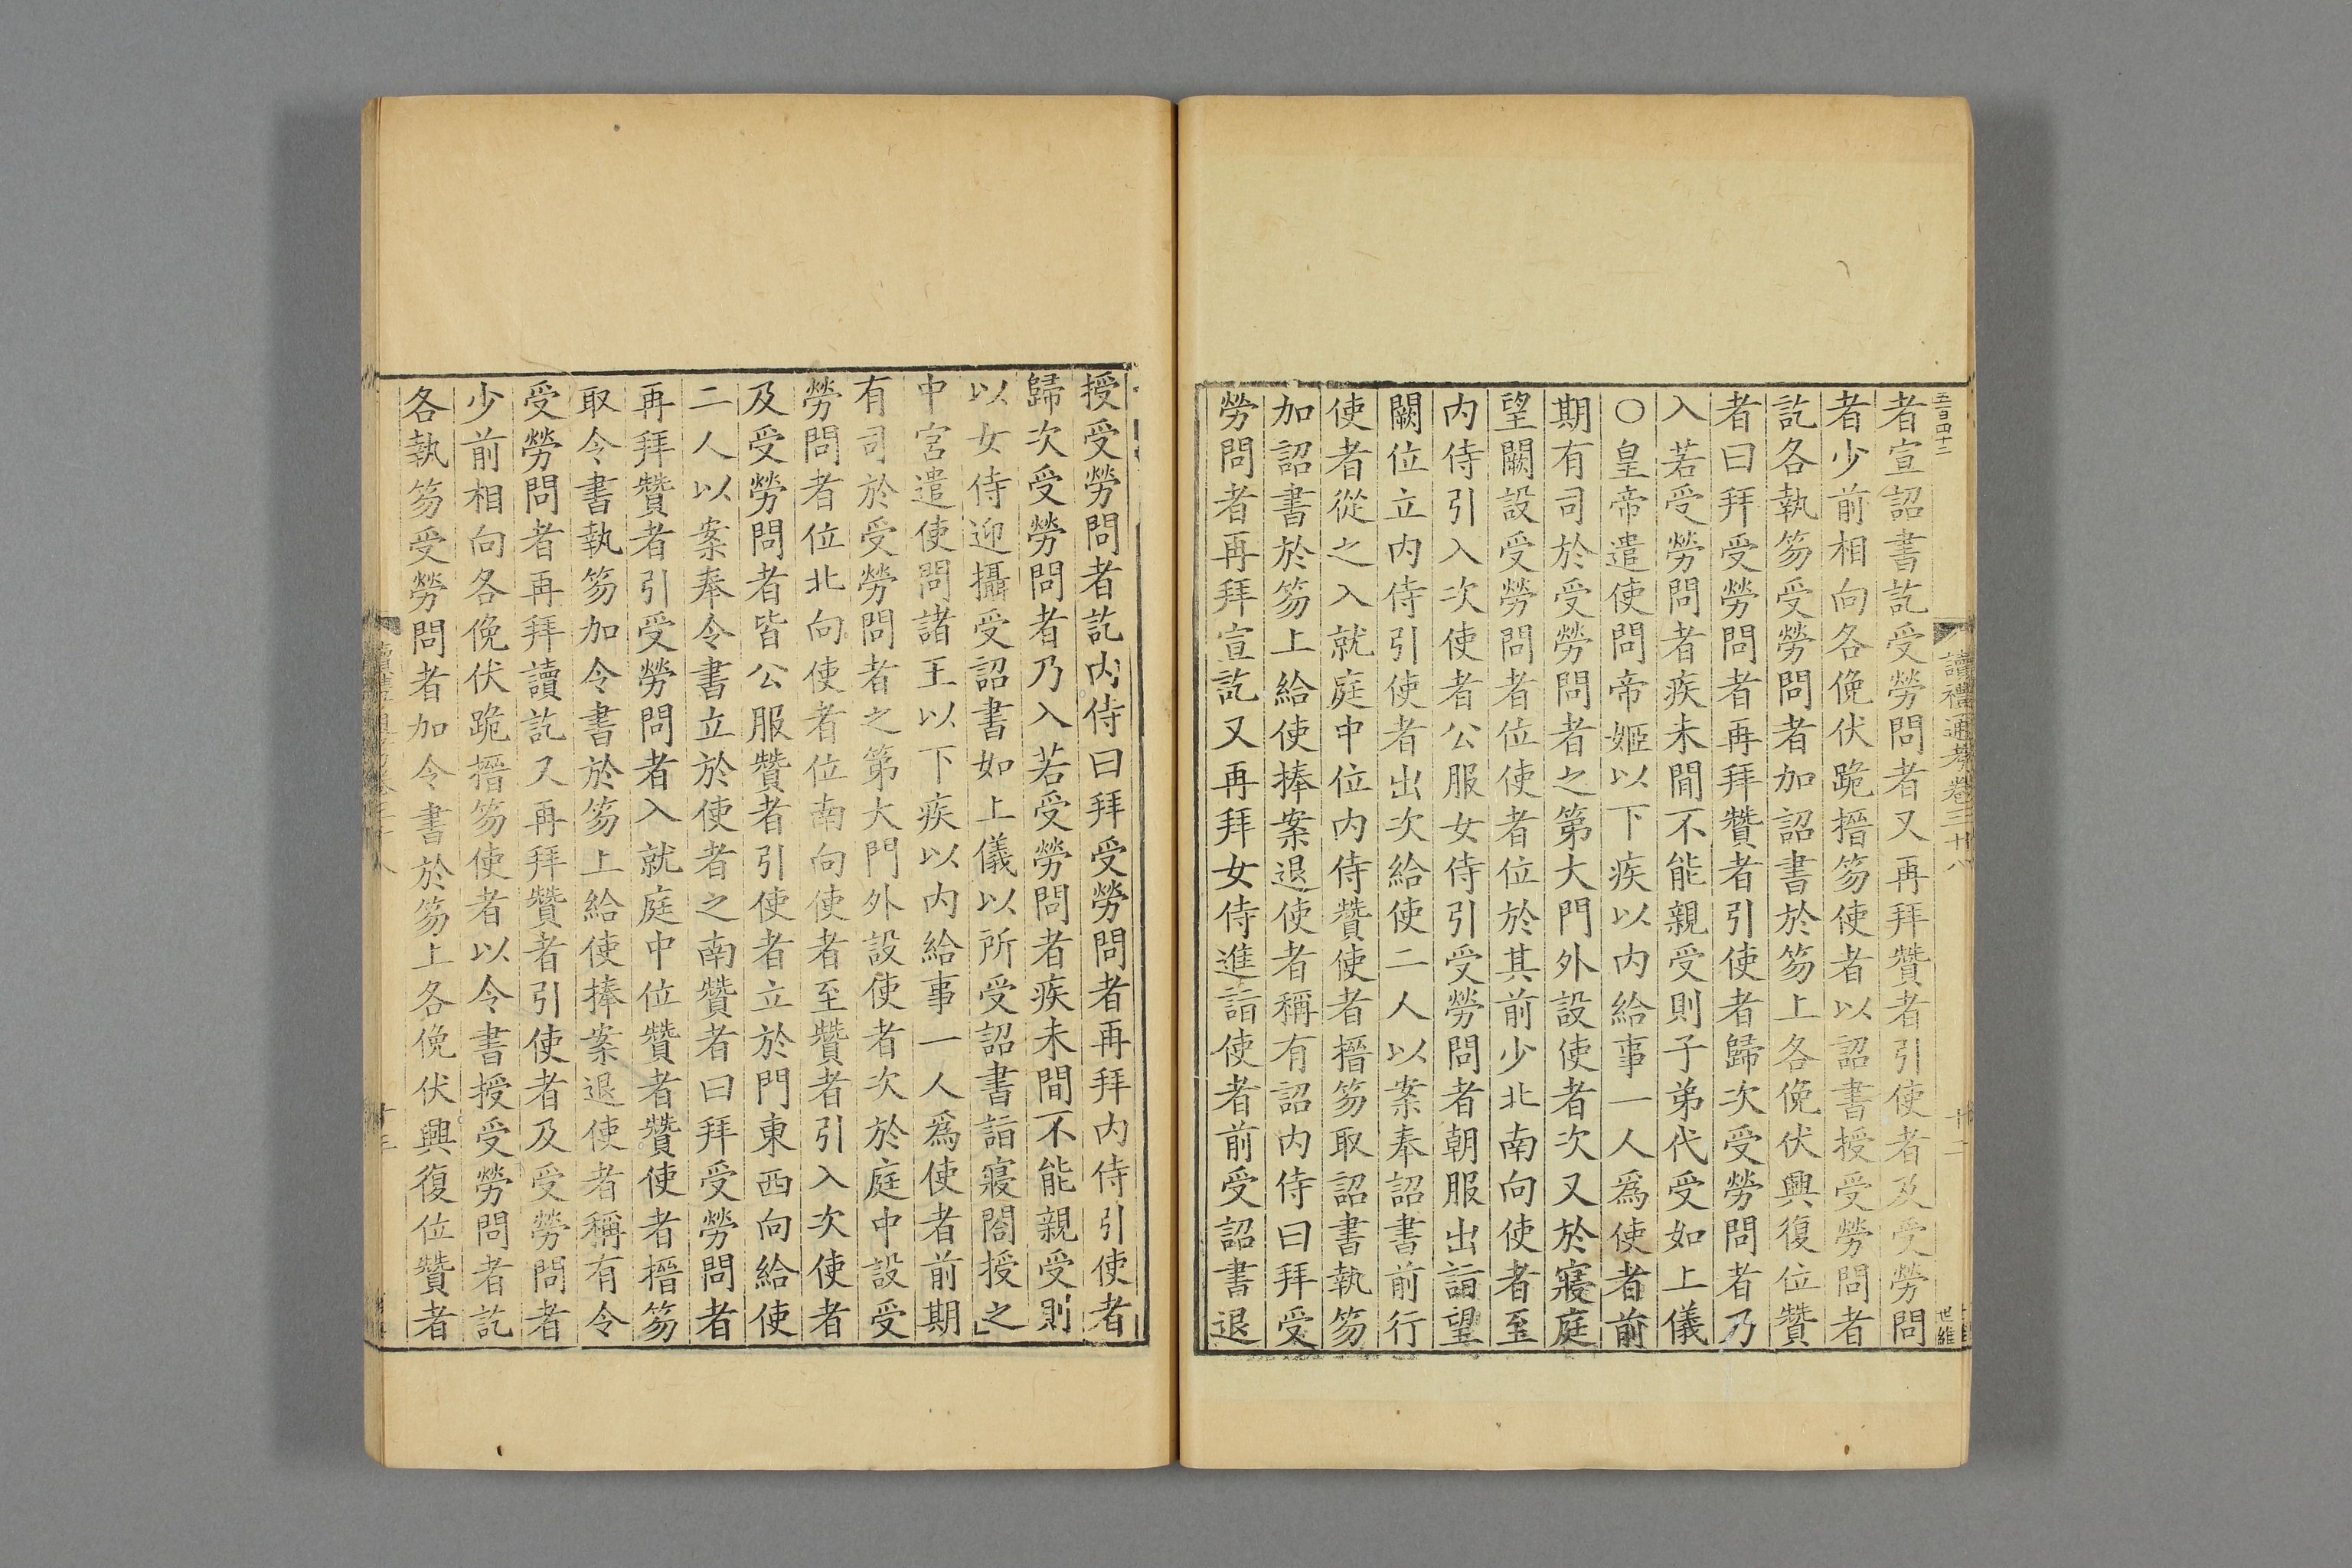 五百四十二
讀禮通考卷三十八
十二
者宣詔書訖受勞問者又再拜贊者引使者及受勞問
者少前相向各俛伏跪搢笏使者以詔書授受勞問者
訖各執笏受勞問者加詔書於笏上各俛伏興復位贊
者曰拜受勞問者再拜贊者引使者歸次受勞問者乃
入若受勞問者疾未間不能親受則子弟代受如上儀
○皇帝遣使問帝姬以下疾以內給事一人爲使者前
期有司於受勞問者之第大門外設使者次又於寢庭
望闕設受勞問者位使者位於其前少北南向使者至
內侍引入次使者公服女侍引受勞問者朝服出詣望
闕位立內侍引使者出次給使二人以案奉詔書前行
使者從之入就庭中位內侍贊使者搢笏取詔書執笏
加詔書於笏上給使捧案退使者稱有詔內侍曰拜受
勞問者再拜宣訖又再拜女侍進詣使者前受詔書退
授受勞問者訖內侍曰拜受勞問者再拜內侍引使者
歸次受勞問者乃入若受勞問者疾未間不能親受則
以女侍迎攝受詔書如上儀以所受詔書詣寢閤授之
中宮遣使問諸王以下疾以內給事一人爲使者前期
有司於受勞問者之第大門外設使者次於庭中設受
勞問者位北向使者位南向使者至贊者引入次使者
及受勞問者皆公服贊者引使者立於門東西向給使
二人以案奉令書立於使者之南贊者曰拜受勞問者
再拜贊者引受勞問者入就庭中位贊者贊使者搢笏
取令書執笏加令書於笏上給使捧案退使者稱有令
受勞問者再拜讀訖又再拜贊者引使者及受勞問者
少前相向各俛伏跪搢笏使者以令書授受勞問者訖
各執笏受勞問者加令書於笏上各俛伏興復位贊者